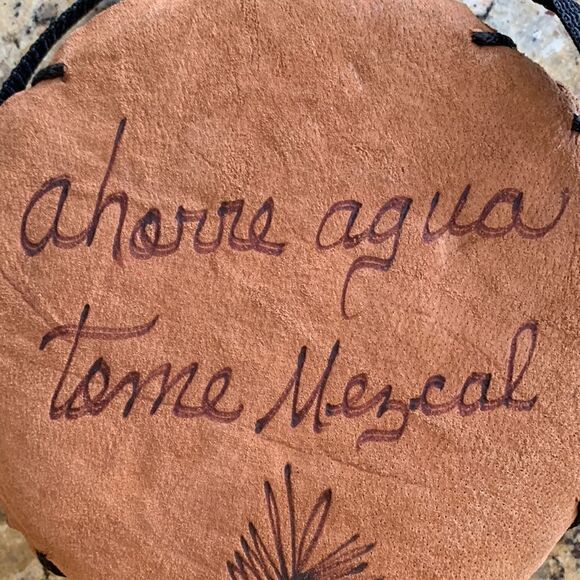 ahorre agua
Tome Mezcal